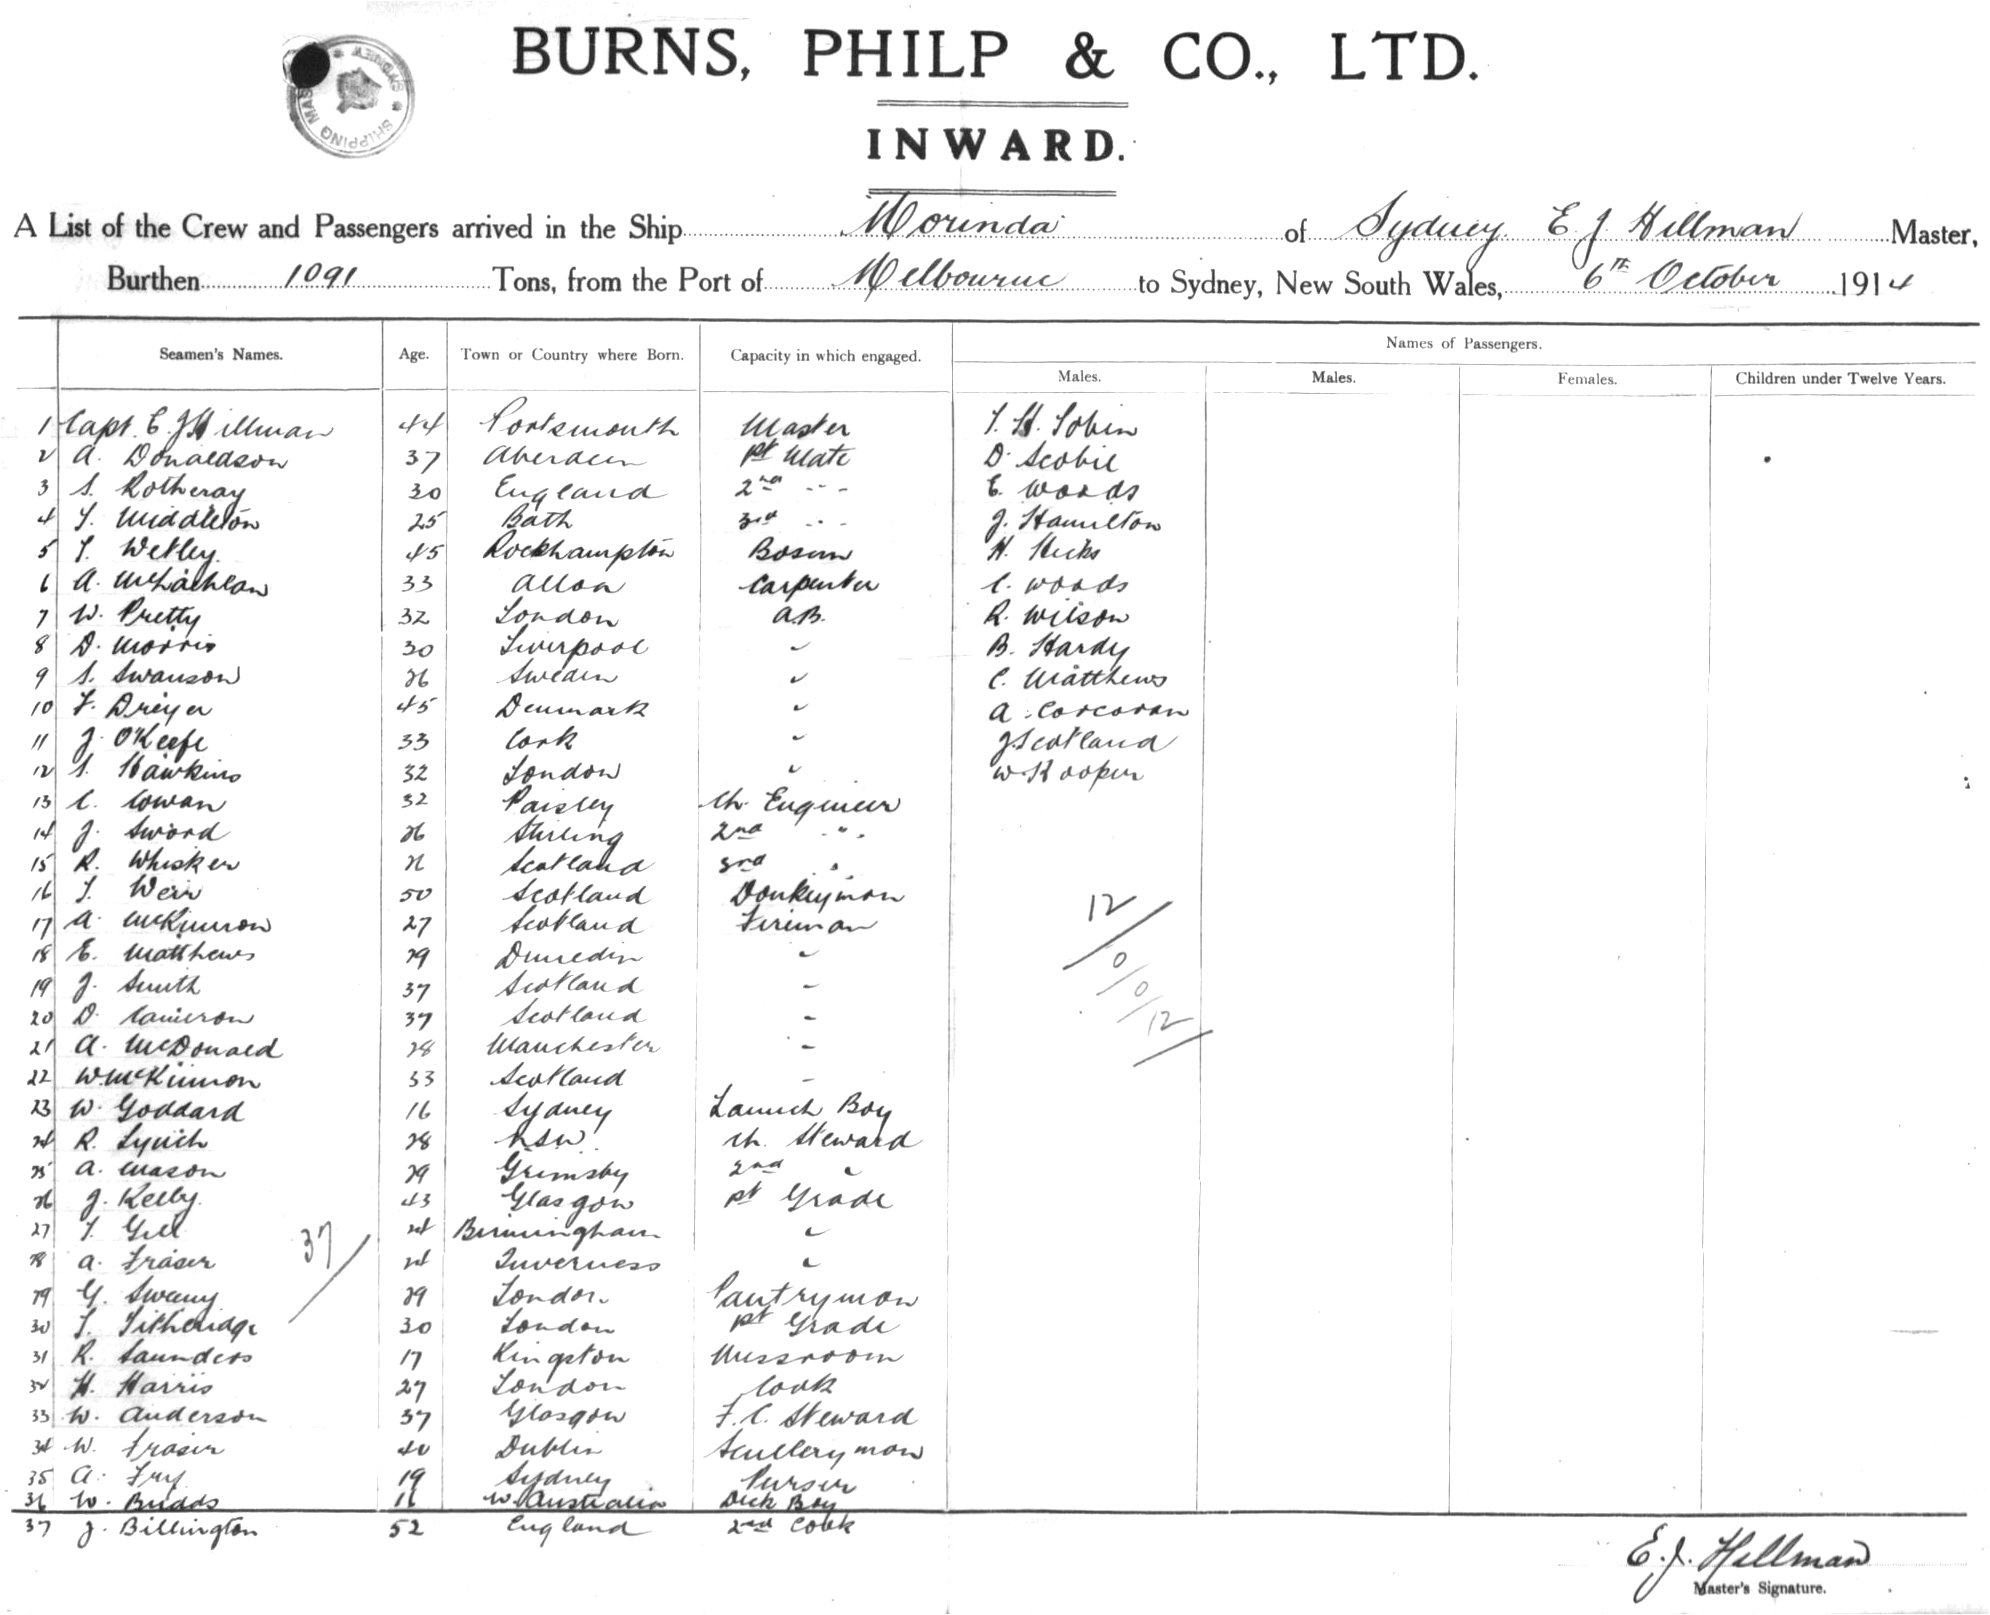 SHIPPING MAS SYDNEY
BURNS, PHILP & CO., LTD.
INWARD.
A List of the Crew and Passengers arrived in the Ship Morinda of Sydney E J Hillman Master,
Burthen 1091 Tons, from the Port of Melbourne to Sydney, New South Wales, 6th October 1914
Names of Passengers.
Seamen's Names. Age. Town or Country where Born. Capacity in which engaged.
Males. Males. Females. Children under Twelve Years.
1 Capt. E. J Hillman 44 Portsmouth Master T. H. Tobin
2 A. Donaldson 37 Aberdeen 1st Mate D. Scobie
3 S. Rotheray 30 England 2nd " E. Woods
4 T. Middleton 25 Bath 3rd " J. Hamilton
5 T. Wetley 45 Rockhampton Bosun H. Hicks
6 A. McLachlan 33 Alloa Carpenter C. Woods
7 W. Pretty 32 London A.B. R. Wilson
8 D. Morris 30 Liverpool " B. Hardy
9 S. Swanson 26 Sweden " C. Matthews
10 F. Dreyer 45 Denmark " A. Corcoran
11 J. O'Keefe 33 Cork " J. Scotland
12 S. Hawkins 32 London " W. Hooper
13 C. Cowan 32 Paisley Ch. Engineer
14 J. Sword 26 Stirling 2nd "
15 R. Whisker Scotland 3rd "
16 T. Weir 50 Scotland Donkeyman
17 A. McKinnon 27 Scotland Fireman
12
18 E. Matthews 29 Dunedin "
0
19 J. Smith 37 Scotland "
0
20 D. Cameron 37 Scotland "
12
21 A. McDonald 28 Manchester "
22 W. McKinnon 33 Scotland "
23 W. Goddard 16 Sydney Launch Boy
24 R. Lynch 28 NSW. Ch. Steward
25 A. Mason 29 Grimsby 2nd "
26 J. Kelly. 43 Glasgow 1st Grade
27 T. Gill 24 Birmingham "
37
28 A. Fraser 24 Inverness "
29 G. Sweeny 29 London Pantryman
30 T. Titheridge 30 London 1st Grade
31 R. Saunders 17 Kingston Messroom
32 H. Harris 27 London Cook
33 W. Anderson 37 Glasgow F. C. Steward
34 W. Fraser 40 Dublin Sculleryman
35 A. Fry 19 Sydney Purser
36 W. Budds 16 W. Australia Deck Boy
37 J. Billington 52 England 2nd Cook
E. J. Hillman
Master's Signature.